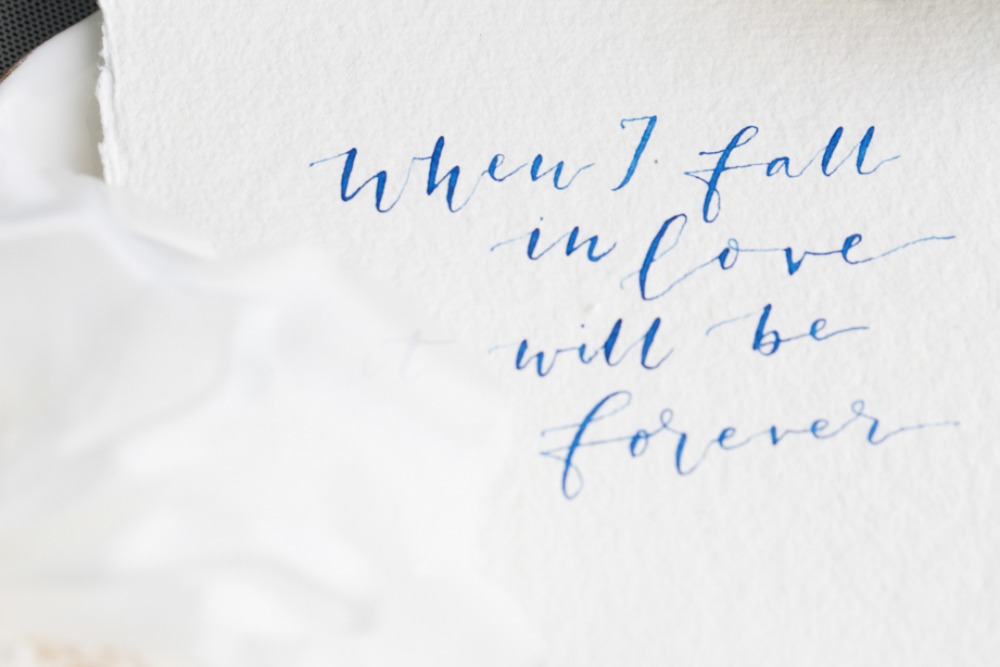 When I fall
in love
will be
forever